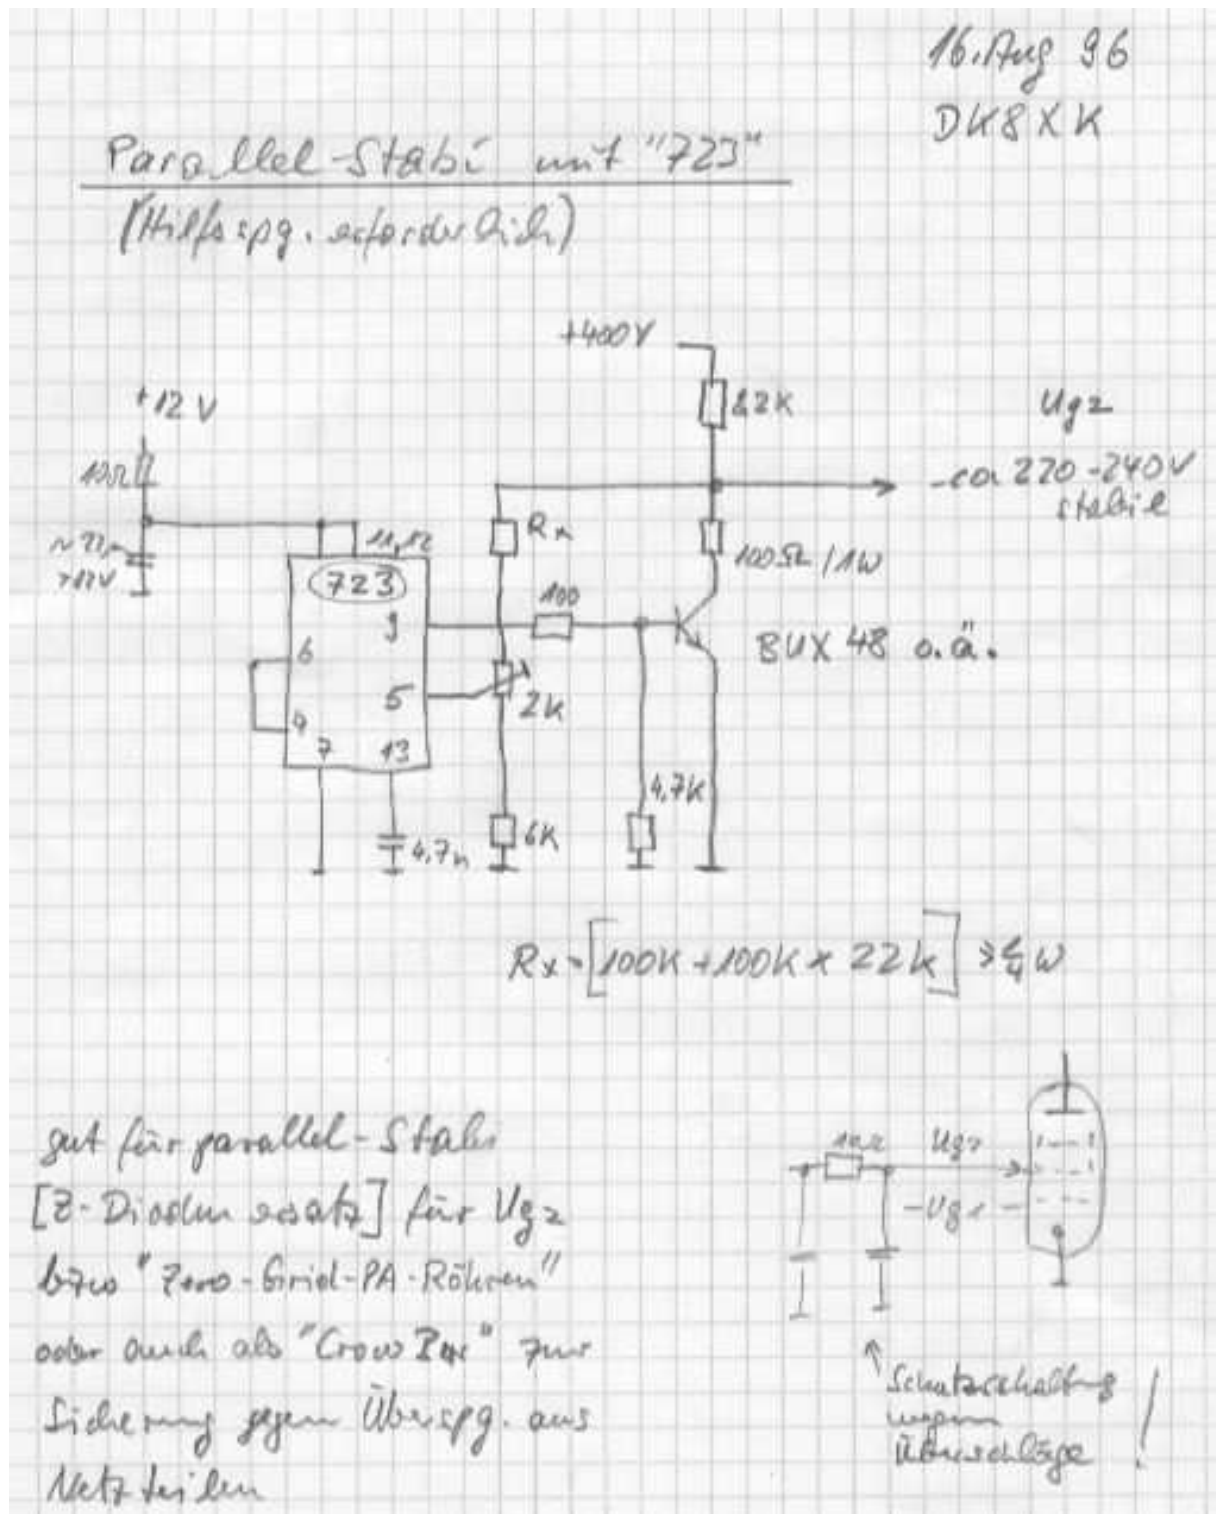 16. Aug 96
DK8XK
Parallel-Stabi mit "723"
(Hilfsspg. erforderlich)
+400V
+12V
82K
Ug2
10Ω
ca 220-240V
stabil
Rx
11,12
>12V
723
100Ω/1W
100
9
6
BUX 48 o.ä.
5
2K
4
7 13
4,7K
6K
4,7n
Rx = [100K + 100K x 22K] W
gut für parallel-Stabi
[Z-Diodenersatz] für Ug2
bzw "Zero-Grid-PA-Röhren"
oder auch als "CrowBar" zur
Sicherung gegen Überspg. aus
Netzteilen
Ug2
-Ug1
Schutzschaltung
wegen
Überschläge !